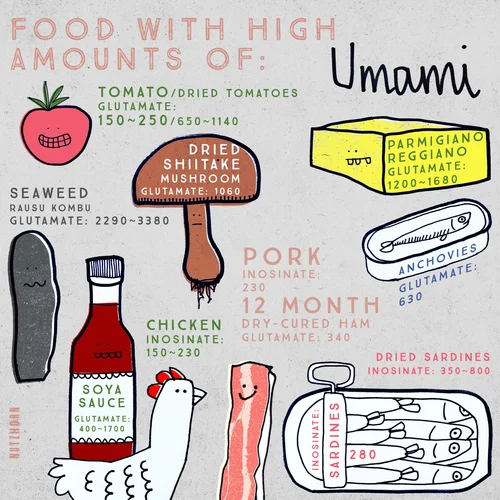 FOOD WITH HIGH
AMOUNTS OF:
Umami
TOMATO/DRIED TOMATOES
GLUTAMATE:
150~250/650~1140
DRIED
SHIITAKE
MUSHROOM
GLUTAMATE: 1060
PARMIGIANO
REGGIANO
GLUTAMATE:
1200~1680
SEAWEED
RAUSU KOMBU
GLUTAMATE: 2290~3380
ANCHOVIES
GLUTAMATE:
630
PORK
INOSINATE:
230
12 MONTH
DRY-CURED HAM
GLUTAMATE: 340
CHICKEN
INOSINATE:
150~230
DRIED SARDINES
INOSINATE: 350~800
SOYA
SAUCE
GLUTAMATE:
400~1700
INOSINATE:
SARDINES
280
NUTZHORN